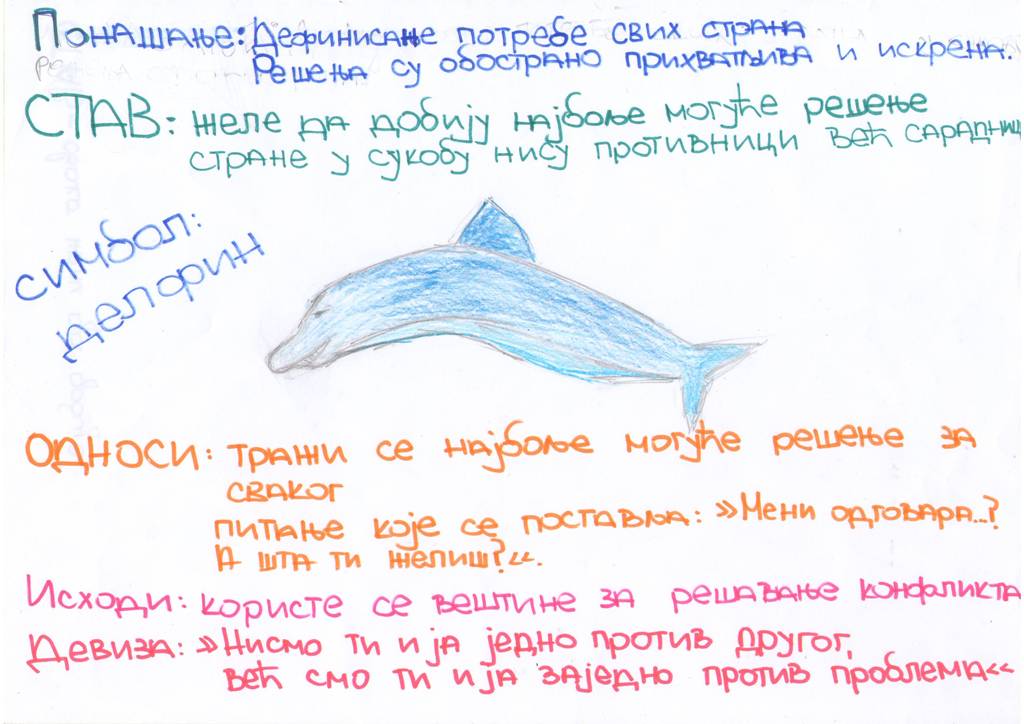 Понашање: Дефинисање потребе свих страна
Решења су обострано прихватљива и искрена.
СТАВ: желе да добију најбоље могуће решење
стране у сукобу нису противници већ сарадниц
симбол:
делфин
ОДНОСИ: тражи се најбоље могуће решење за
сваког
питање које се поставља: »Мени одговара...?
А шта ти желиш?«.
Исходи: користе се вештине за решавање конфликта
Девиза: »Нисмо ти и ја једно против другог,
већ смо ти и ја заједно против проблема«